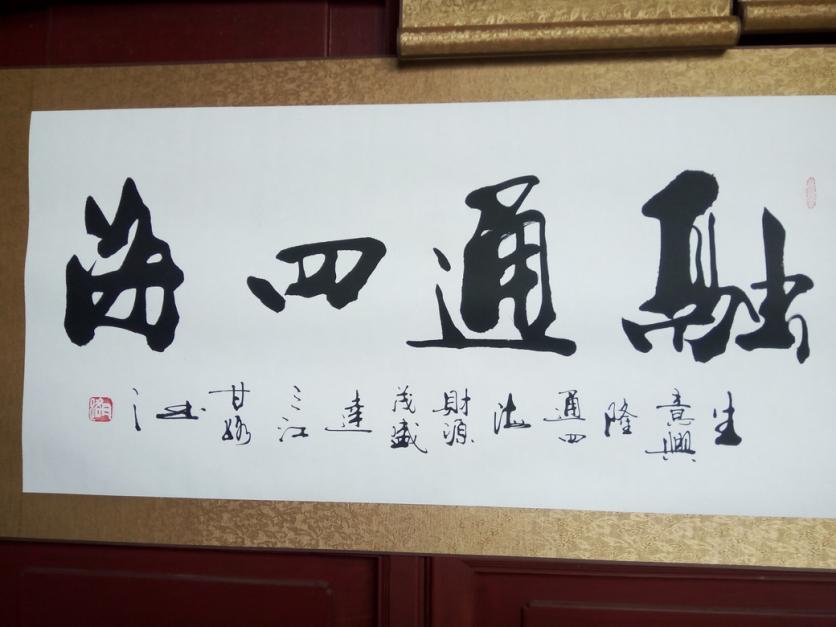 融通四海
生意興隆通四海財源茂盛達三江甘书